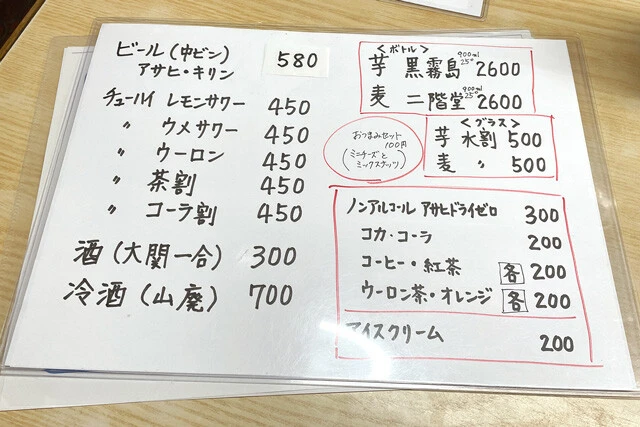 ビール(中ビン) 580
アサヒ・キリン
チューハイ レモンサワー 450
〃 ウメサワー 450
〃 ウーロン 450
〃 茶割 450
〃 コーラ割 450
酒(大関一合) 300
冷酒(山廃) 700
<ボトル>
芋 黒霧島 900ml 25° 2600
麦 二階堂 900ml 25° 2600
おつまみセット
100円
(ミニチーズと
ミックスナッツ)
<グラス>
芋 水割 500
麦 〃 500
ノンアルコール アサヒドライゼロ 300
コカ・コーラ 200
コーヒー・紅茶 各 200
ウーロン茶・オレンジ 各 200
アイスクリーム 200